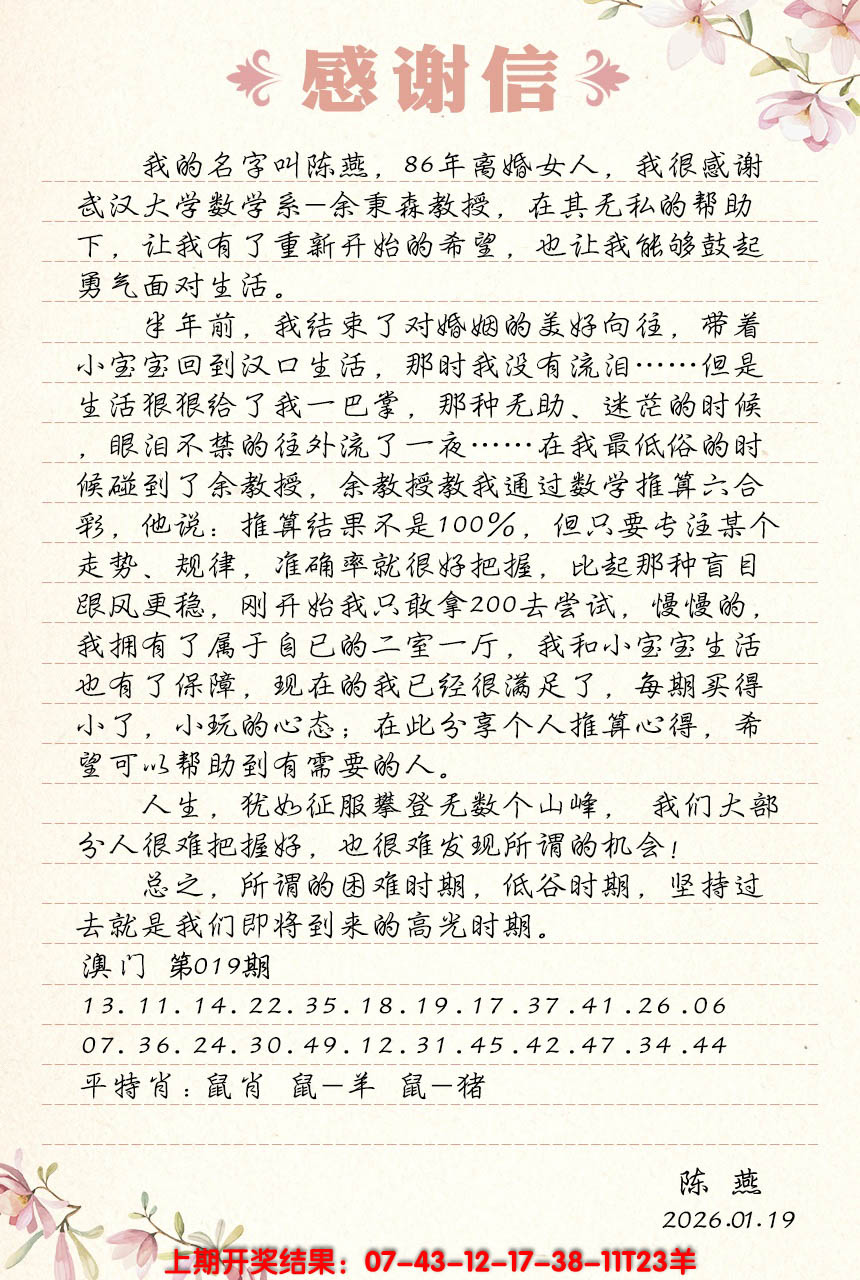 感谢信
我的名字叫陈燕，86年离婚女人，我很感谢
武汉大学数学系—余秉森教授，在其无私的帮助
下，让我有了重新开始的希望，也让我能够鼓起
勇气面对生活。
半年前，我结束了对婚姻的美好向往，带着
小宝宝回到汉口生活，那时我没有流泪……但是
生活狠狠给了我一巴掌，那种无助、迷茫的时候
，眼泪不禁的往外流了一夜……在我最低俗的时
候碰到了余教授，余教授教我通过数学推算六合
彩，他说：推算结果不是100%，但只要专注某个
走势、规律，准确率就很好把握，比起那种盲目
跟风更稳，刚开始我只敢拿200去尝试，慢慢的，
我拥有了属于自已的二室一厅，我和小宝宝生活
也有了保障，现在的我已经很满足了，每期买得
小了，小玩的心态；在此分享个人推算心得，希
望可以帮助到有需要的人。
人生，犹如征服攀登无数个山峰， 我们大部
分人很难把握好，也很难发现所谓的机会！
总之，所谓的困难时期，低谷时期，坚持过
去就是我们即将到来的高光时期。
澳门 第019期
13.11.14.22.35.18.19.17.37.41.26.06
07.36.24.30.49.12.31.45.42.47.34.44
平特肖：鼠肖 鼠—羊 鼠—猪
陈 燕
2026.01.19
上期开奖结果：07-43-12-17-38-11T23羊